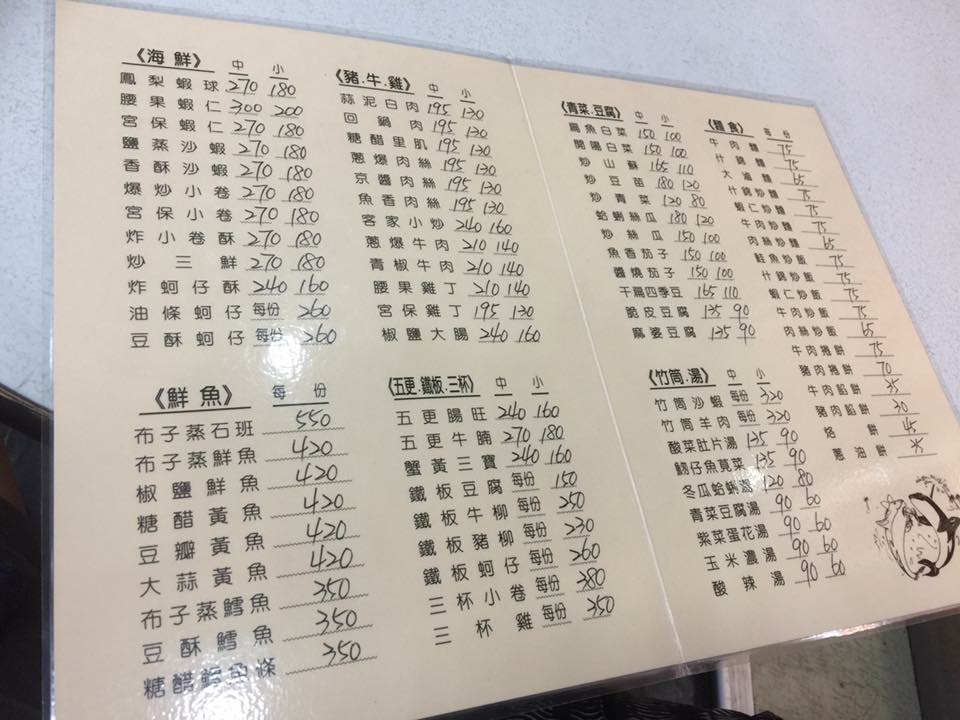 《海鮮》 中 小
鳳梨蝦球 270 180
腰果蝦仁 300 200
宮保蝦仁 270 180
鹽蒸沙蝦 270 180
香酥沙蝦 270 180
爆炒小卷 270 180
宮保小卷 270 180
炸小卷酥 270 180
炒三鮮 270 180
炸蚵仔酥 240 160
油條蚵仔 每份 260
豆酥蚵仔 每份 260
《鮮魚》 每份
布子蒸石班 550
布子蒸鮮魚 420
椒鹽鮮魚 420
糖醋黃魚 420
豆瓣黃魚 420
大蒜黃魚 420
布子蒸鱈魚 350
豆酥鱈魚 350
糖醋鱈魚條 350
《豬.牛.雞》 中 小
蒜泥白肉 195 130
回鍋肉 195 130
糖醋里肌 195 130
蔥爆肉絲 195 130
京醬肉絲 195 130
魚香肉絲 195 130
客家小炒 240 160
蔥爆牛肉 210 140
青椒牛肉 210 140
腰果雞丁 210 140
宮保雞丁 195 130
椒鹽大腸 240 160
《五更.鐵板.三杯》 中 小
五更腸旺 240 160
五更牛腩 270 180
蟹黃三寶 240 160
鐵板豆腐 每份 150
鐵板牛柳 每份 250
鐵板豬柳 每份 230
鐵板蚵仔 每份 260
三杯小卷 每份 380
三杯雞 每份 350
《青菜.豆腐》 中 小
扁魚白菜 150 100
開陽白菜 150 100
炒山蘇 165 110
炒豆苗 180 120
炒青菜 120 80
蛤蜊絲瓜 180 120
炒絲瓜 150 100
魚香茄子 150 100
醬燒茄子 150 100
干扁四季豆 165 110
脆皮豆腐 135 90
麻婆豆腐 135 90
《竹筒.湯》 中 小
竹筒沙蝦 每份 320
竹筒羊肉 每份 320
酸菜肚片湯 135 90
魩仔魚莧菜 135 90
冬瓜蛤蜊湯 120 80
青菜豆腐湯 90 60
紫菜蛋花湯 90 60
玉米濃湯 90 60
酸辣湯 90 60
《麵食》 每份
牛肉麵 75
什錦麵 75
大滷麵 65
什錦炒麵 75
蝦仁炒麵 75
牛肉炒麵 75
肉絲炒麵 65
鮭魚炒飯 75
什錦炒飯 75
蝦仁炒飯 75
牛肉炒飯 75
肉絲炒飯 65
牛肉捲餅 75
豬肉捲餅 70
牛肉餡餅 35
豬肉餡餅 30
烙餅 45
蔥油餅 35